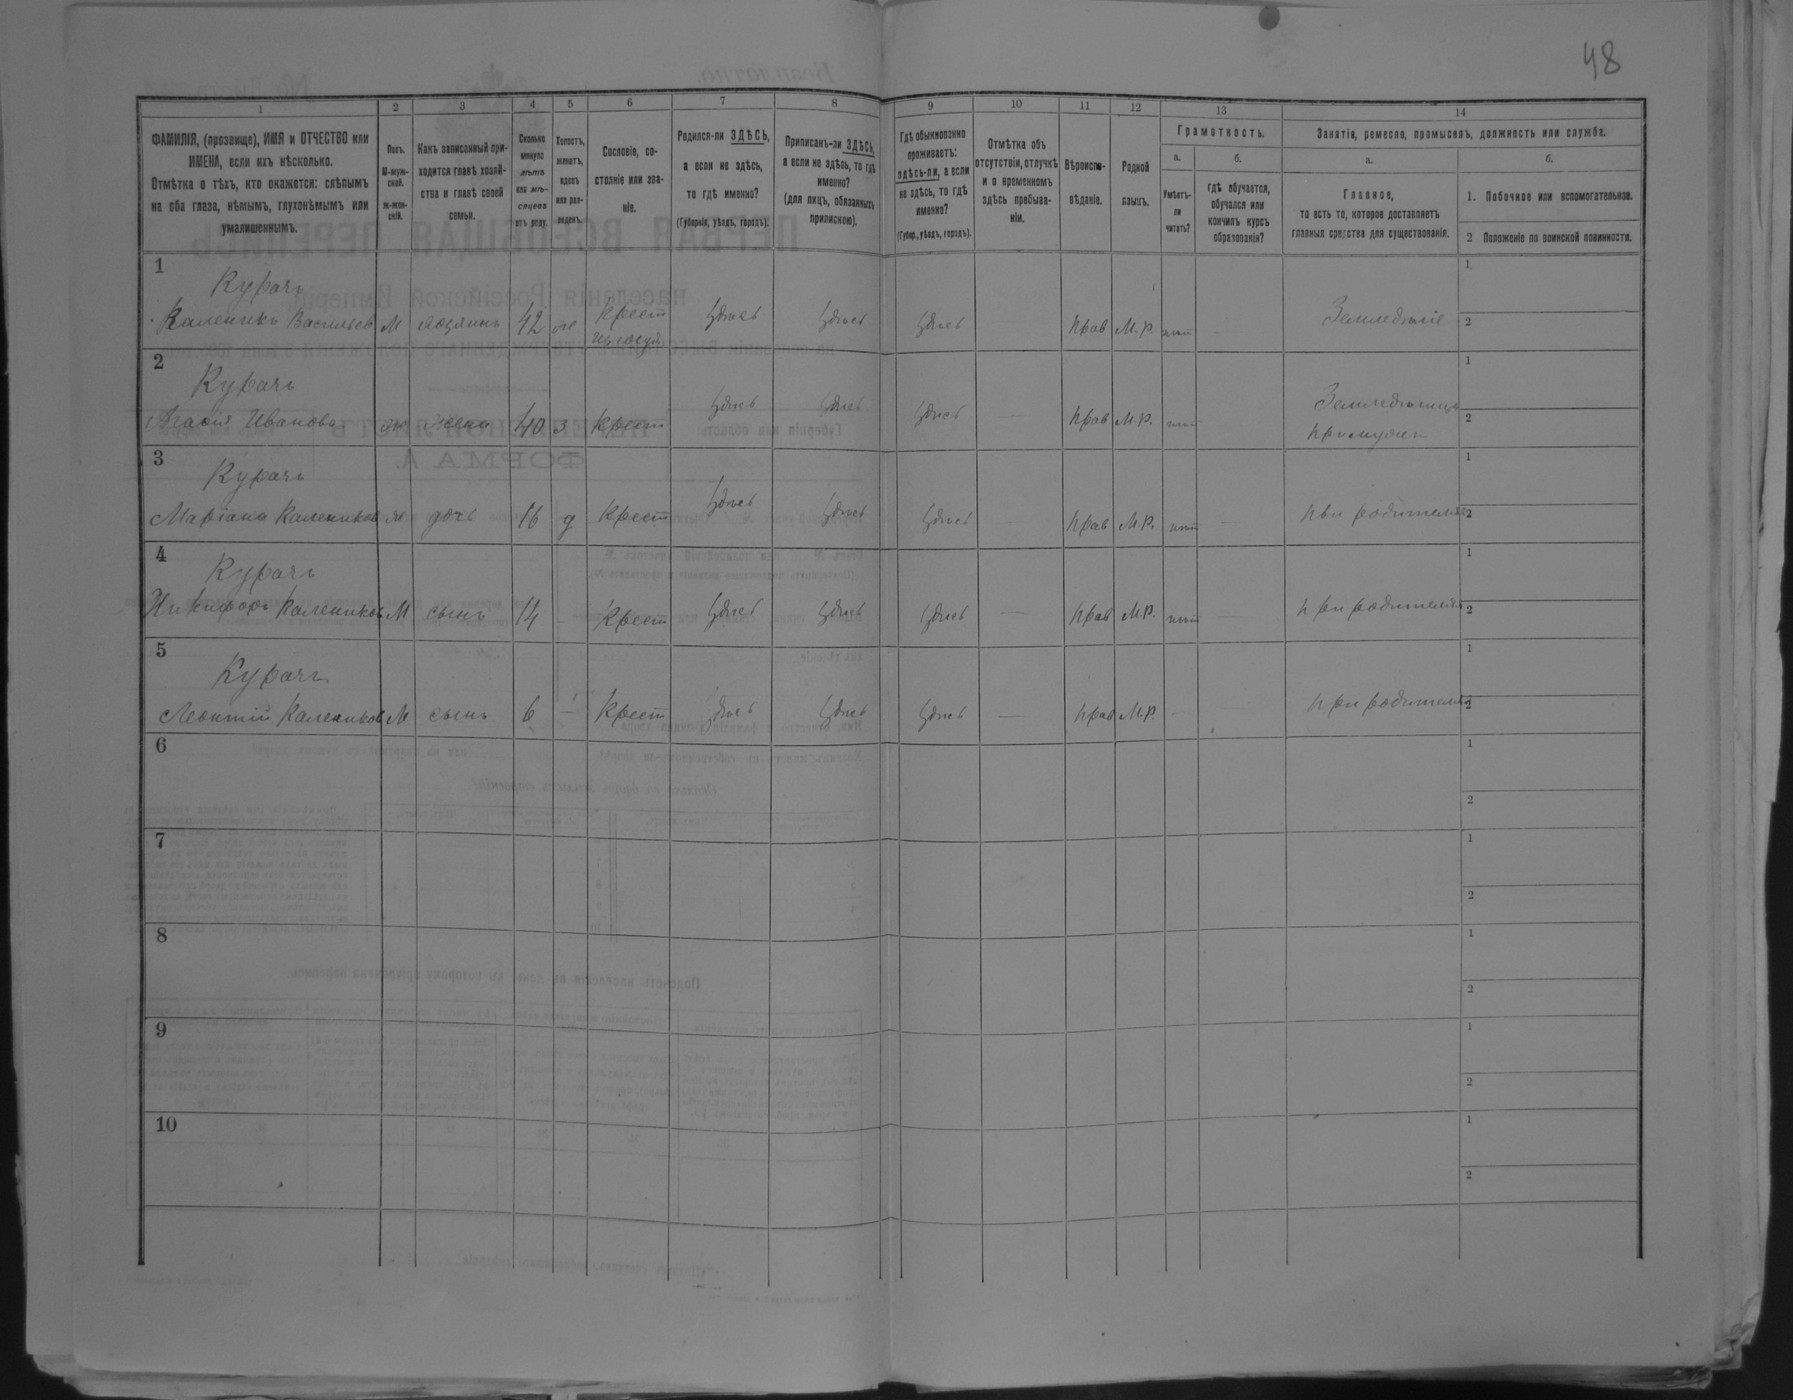 48
1 2 3 4 5 6 7 8 9 10 11 12 13 14
ФАМИЛІЯ, (прозвище), ИМЯ и ОТЧЕСТВО или
ИМЕНА, если ихъ нѣсколько.
Отмѣтка о тѣхъ, кто окажется: слѣпымъ
на оба глаза, нѣмымъ, глухонѣмымъ или
умалишеннымъ.
Полъ.
М-муж-
ской.
ж-жен-
скій.
Какъ записанный при-
ходится главѣ хозяй-
ства и главѣ своей
семьи.
Сколько
минуло
лѣтъ
или мѣ-
сяцевъ
отъ роду.
Холостъ,
женатъ,
вдовъ
или раз-
веденъ.
Сословіе, со-
стояніе или зва-
ніе.
Родился-ли ЗДѢСЬ,
а если не здѣсь,
то гдѣ именно?
(Губернія, уѣздъ, городъ).
Приписанъ-ли ЗДѢСЬ,
а если не здѣсь, то гдѣ
именно?
(для лицъ, обязанныхъ
припискою).
Гдѣ обыкновенно
проживаетъ:
здѣсь-ли, а если
не здѣсь, то гдѣ
именно?
(Губер., уѣздъ, городъ).
Отмѣтка объ
отсутствіи, отлучкѣ
и о временномъ
здѣсь пребыва-
ніи.
Вѣроиспо-
вѣданіе.
Родной
языкъ.
Грамотность.
а. б.
Умѣетъ-
ли
читать?
гдѣ обучается,
обучался или
кончилъ курсъ
образованія?
Занятіе, ремесло, промыселъ, должность или служба.
а. б.
Главное,
то есть то, которое доставляетъ
главныя средства для существованія.
1. Побочное или вспомогательное.
2 Положеніе по воинской повинности.
1 Курачъ Крест 1
Каленикъ Васильев М хозяинъ 42 же здѣсь здѣсь здѣсь — Прав М.Р. нѣт — Земледѣліе 2
2 Курачъ Земледѣлица 1
Иванова ж жена 40 з Крест здѣсь здѣсь здѣсь — Прав М.Р. нѣт При мужѣ 2
3 Курачъ 1
Маріана Каленикова ж дочь 16 д Крест здѣсь здѣсь здѣсь — Прав М.Р. нѣт — При родителях 2
4 Курачъ 1
Никифоръ Калеников М сынъ 14 — Крест здѣсь здѣсь здѣсь — Прав М.Р. нѣт — При родителях 2
5 Курачъ 1
Леонтій Калеников М сынъ 6 — Крест здѣсь здѣсь здѣсь — Прав М.Р. — — При родителях 2
6 1
2
7 1
2
8 1
2
9 1
2
10 1
2